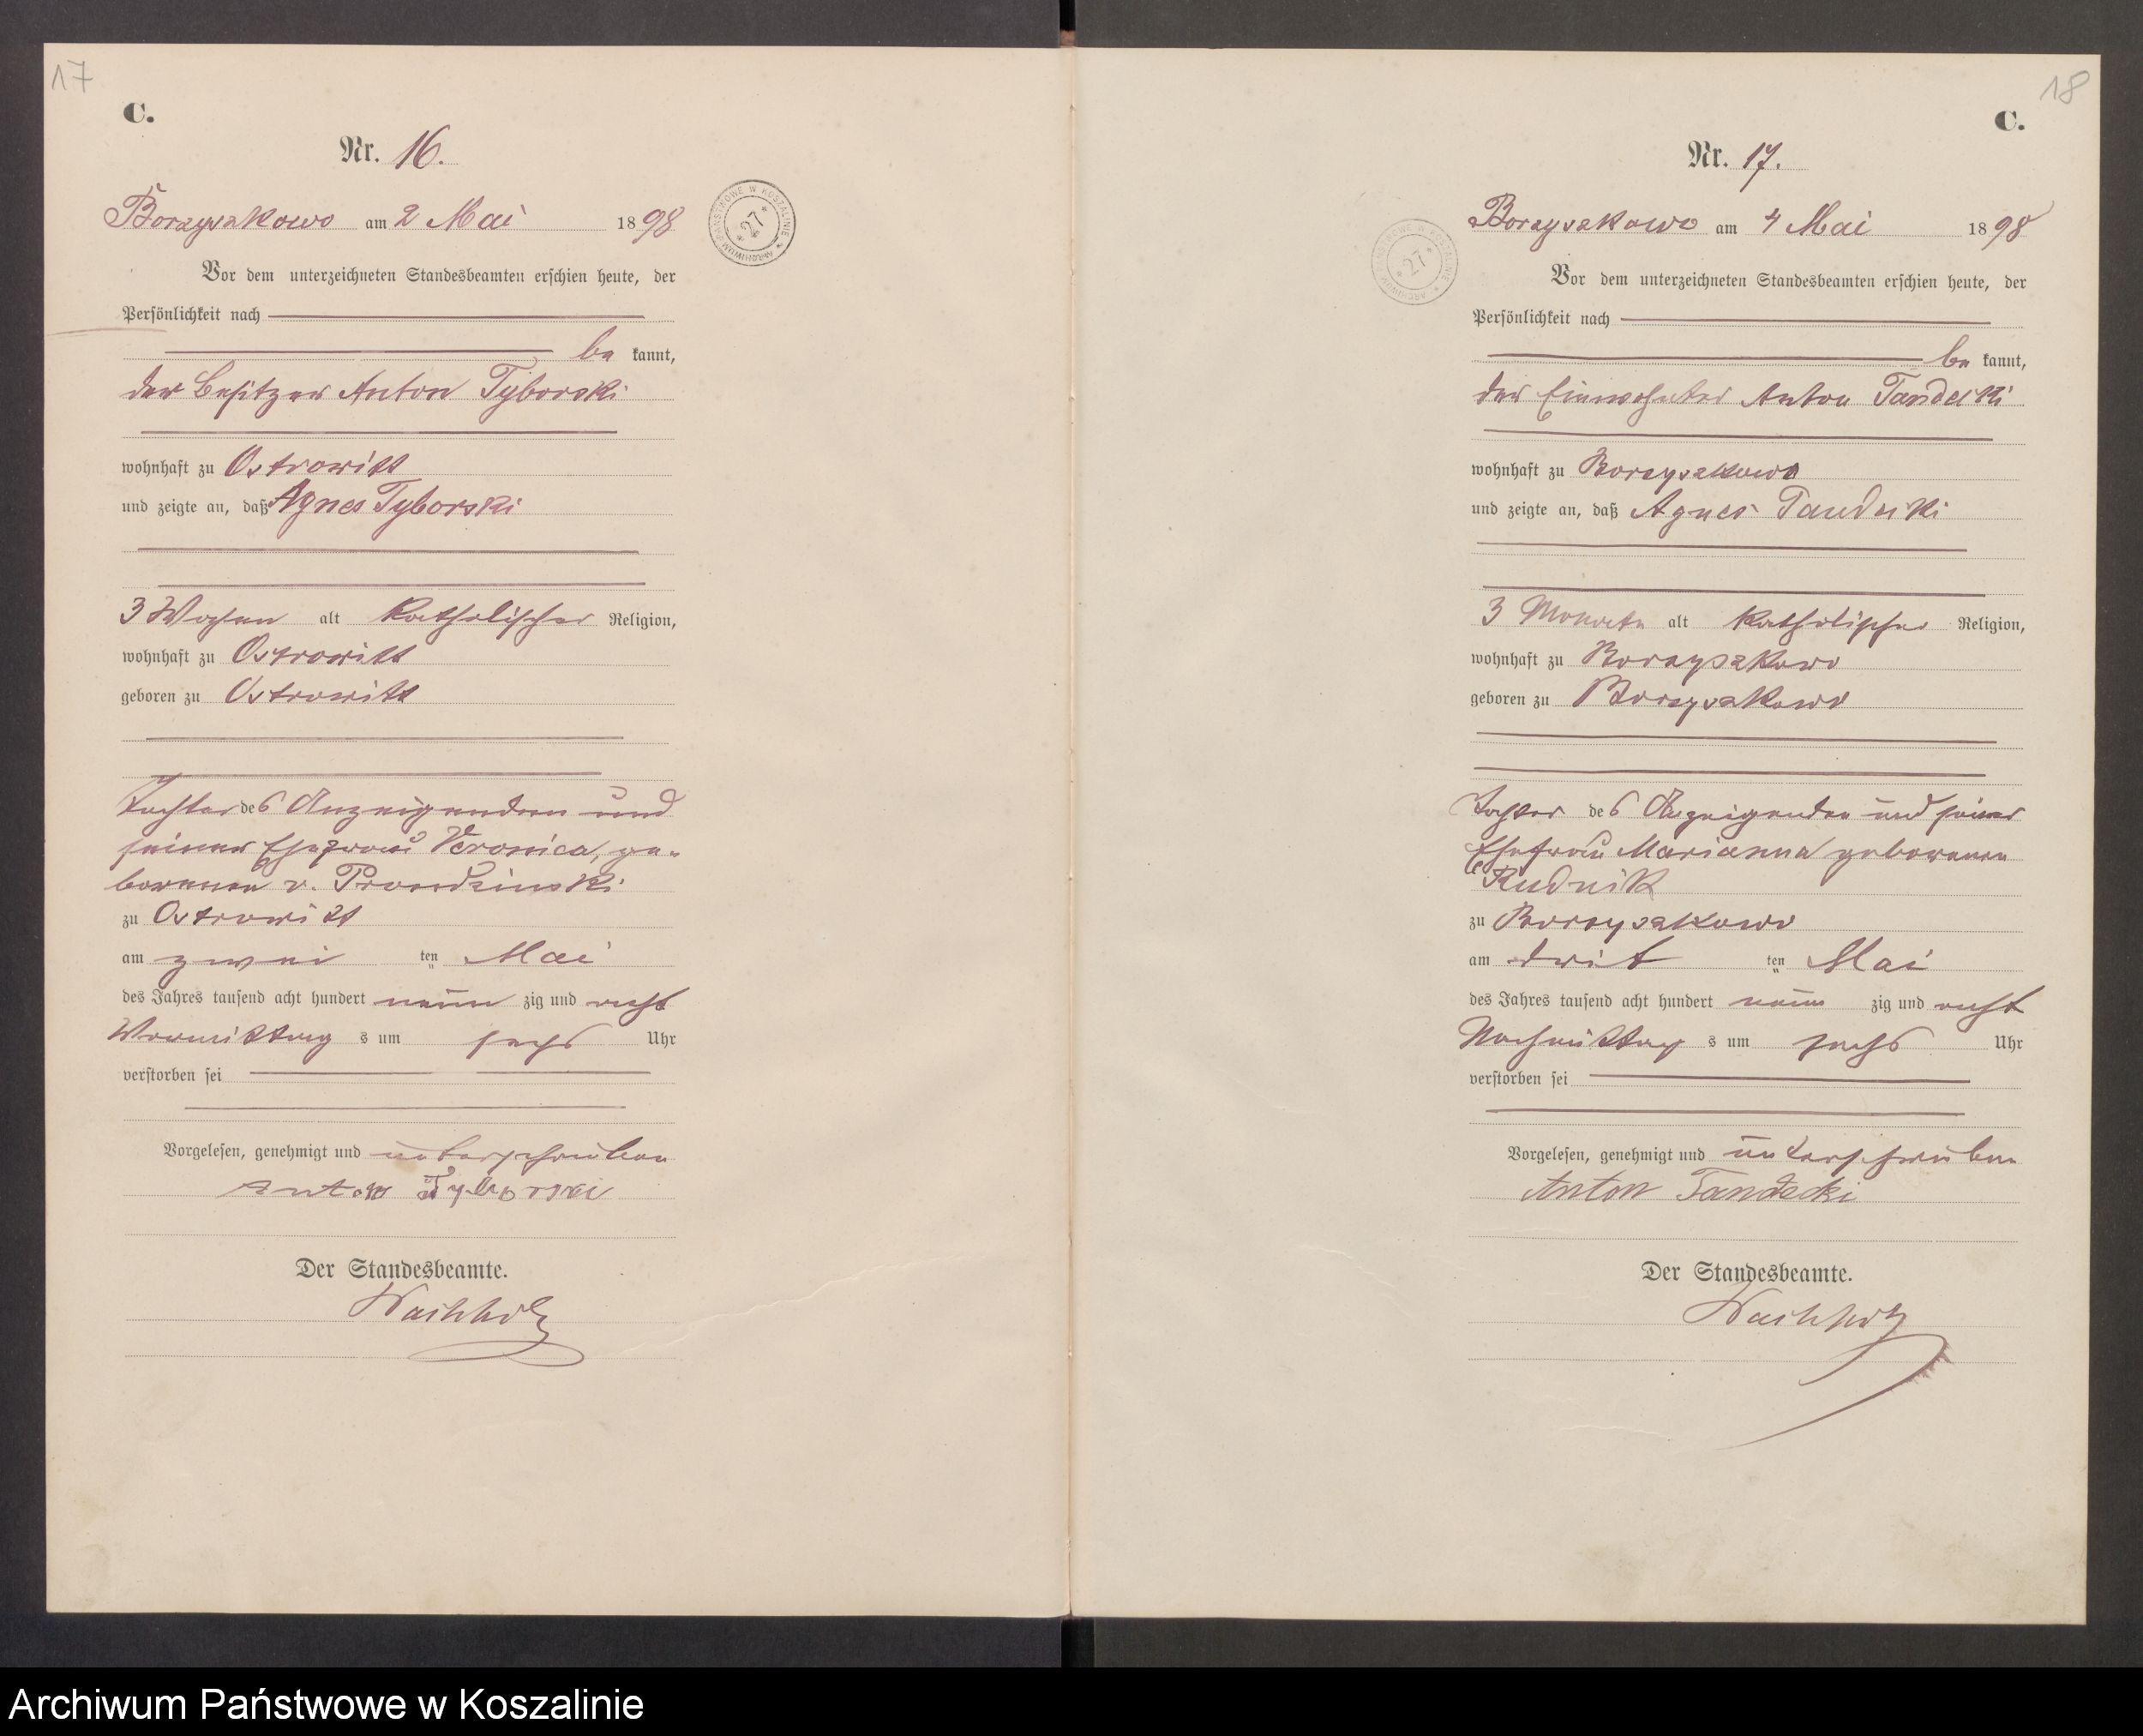 17
C.
Nr. 16.
Borzyszkowo am 2 Mai 1898
ARCHIWUM PAŃSTWOWE W KOSZALINIE
* 27 *
Vor dem unterzeichneten Standesbeamten erschien heute, der
Persönlichkeit nach
be kannt,
der Besitzer Anton Tyborski
wohnhaft zu Ostrowitt
und zeigte an, daß Agnes Tyborski
3 Wochen alt katholischer Religion,
wohnhaft zu Ostrowitt
geboren zu Ostrowitt
Tochter des Anzeigenden und
seiner Ehefrau Veronica, ge-
borenen v. Prondzinski
zu Ostrowitt
am zwei ten Mai
des Jahres tausend acht hundert neun zig und acht
Vormittag s um sechs Uhr
verstorben sei
Vorgelesen, genehmigt und unterschrieben
Anton Tyborski
Der Standesbeamte.
Wachholz
18
C.
Nr. 17.
Borzyszkowo am 4 Mai 1898
ARCHIWUM PAŃSTWOWE W KOSZALINIE
* 27 *
Vor dem unterzeichneten Standesbeamten erschien heute, der
Persönlichkeit nach
be kannt,
der Einwohner Anton Tandecki
wohnhaft zu Borzyszkowo
und zeigte an, daß Agnes Tandecki
3 Monate alt katholischer Religion,
wohnhaft zu Borzyszkowo
geboren zu Borzyszkowo
Tochter des Anzeigenden und seiner
Ehefrau Marianna geborenen
Rudnik
zu Borzyszkowo
am drit ten Mai
des Jahres tausend acht hundert neun zig und acht
Nachmittag s um sechs Uhr
verstorben sei
Vorgelesen, genehmigt und unterschrieben
Anton Tandecki
Der Standesbeamte.
Wachholz
Archiwum Państwowe w Koszalinie